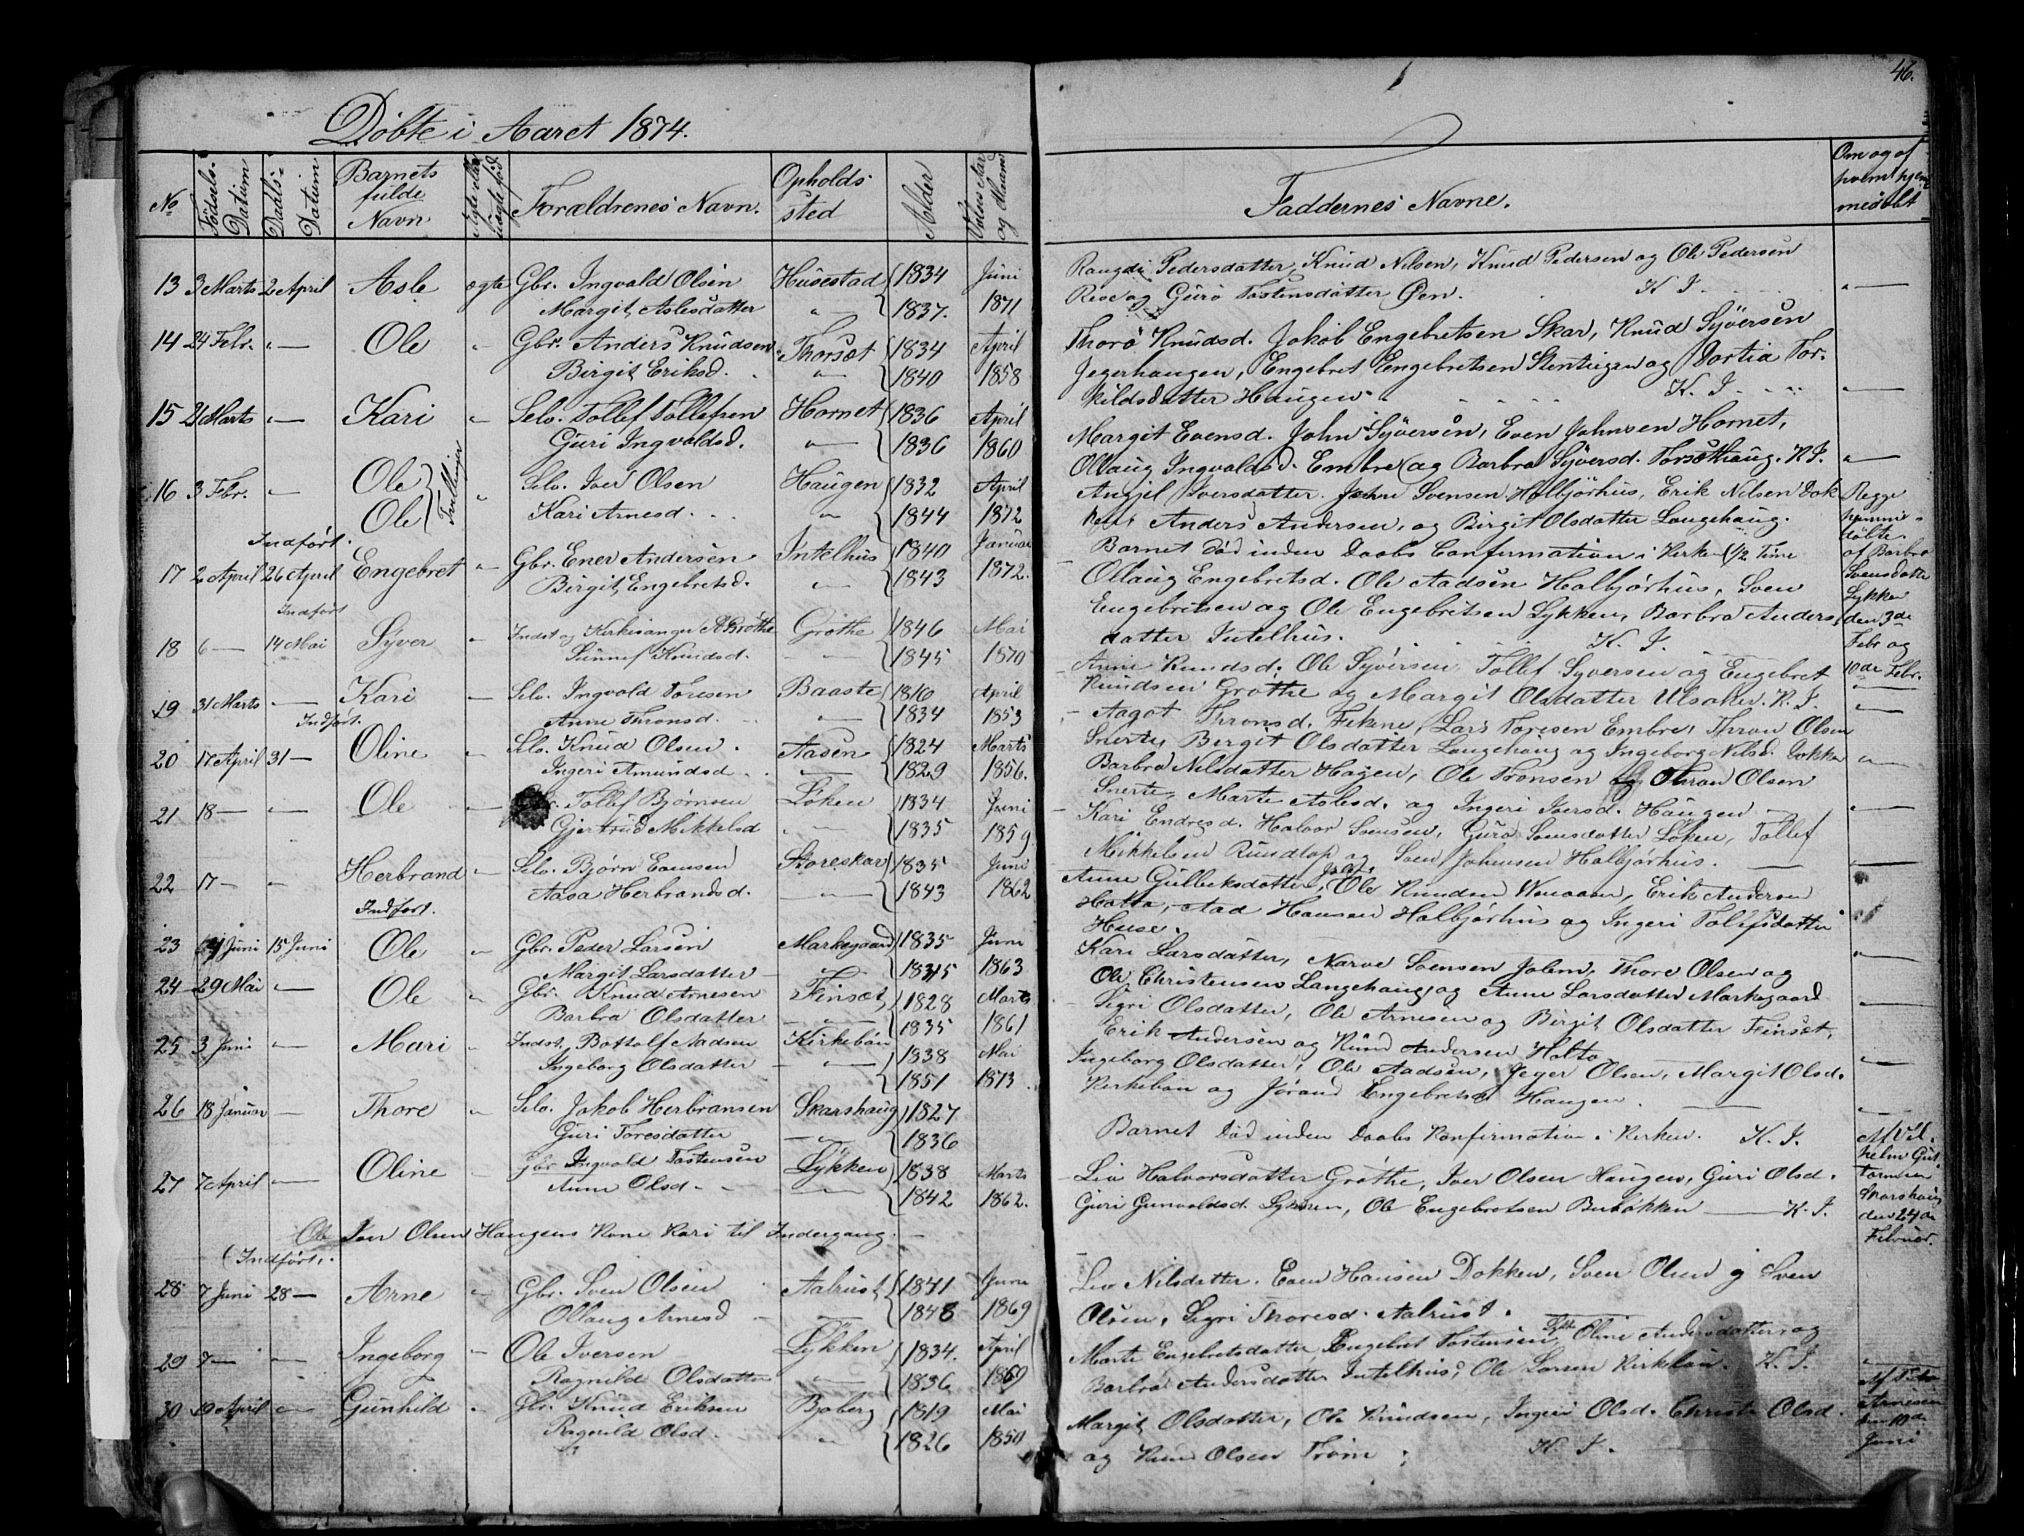 46.
Döbte i Aaret 1874.
No
Födsels- Datum
Daabs- Datum
Barnets fulde Navn
Forældrenes Navn.
Opholds sted
Alder
Faddernes Navne.
Om og af hvem hjemmedöbt
13 3 Marts 2 April Asle ægte Gbr. Ingvald Olsen Husestad 1834 Juni
Margit Aslesdatter " 1837. 1871
Rangdi Pedersdatter, Knud Nilsen, Knud Pedersen og Ole Pedersen
og Guro Tostensdatter K. I.
14 24 Febr. " Ole " Gbr. Anders Knudsen Thorset 1834 April
Birgit Eriksd. " 1840 1858
Thorö Knudsd. Jakob Engebretsen Skar, Knud Syversen
Jegerhaugen, Engebret Engebretsen og Dortia Tor-
kildsdatter Haugen K. I.
15 21 Marts " Kari " Selv. Tollef Tollefsen Hornet 1836 April
Guri Ingvaldsd. " 1836 1860
Margit Evensd. John Syversen, Even Johnsen Hornet,
Ollaug Ingvaldsd. Embre og Barbro Syversd. Torsethaug. K. I.
16 3 Febr. " Ole Ole Tvillinger " Selv. Iver Olsen Haugen 1832 April
Kari Arnesd. " 1844 1872
Angjel Iversdatter. John Svensen Halbjörhus, Erik Nilsen Dok-
ken, Anders Andersen, og Birgit Olsdatter Langehaug.
Begge hjemmedöbte af Barbro Svensdatter Lykken den 3de Febr og 10de Febr.
Indfört.
17 2 April 26 April Engebret " Gbr. Ener Andersen Intelhus 1840 Januar
Birgit Engebretsd. " 1843 1872.
Barnet död inden Daabs Confirmation i Kirken 1/2 Time
Ollaug Engebretsd. Ole Aadsen Halbjörhus, Sven
Engebretsen og Ole Engebretsen Lykken, Barbro Anders-
datter Intelhus. K. I.
Indfört
18 6 — 14 Mai Syver " Indst og Kirkesanger A Gröthe Gröthe 1846 Mai
Sunnef Knudsd. 1845 1870
Anne Knudsd. Ole Syversen Tollef Syversen og Engebret
Knudsen Gröthe og Margit Olsdatter Ulsaker. K. I.
19 31 Marts — Kari — Selv. Ingvald Toresen Baaste 1816 April
Anne Thronsd. " 1834 1853
Aagot Thronsd. Lars Toresen Embre, Thron Olsen
Snerte, Birgit Olsdatter Langehaug og Ingeborg Nilsd. Dokken
Indfört.
20 17 April 31 — Oline " Selv. Knud Olsen Aasen 1824 Marts
Ingeri Amundsd. 1829 1856.
Barbro Nilsdatter Hagen, Ole Tronsen og Thron Olsen
Snerte, Marte Aslesd. og Ingeri Iversd. Haugen
21 18 — — Ole — Gbr. Tollef Björnsen Löken 1834 Juni
Gjertrud Mikkelsd " 1835 1859
Kari Endresd. Halvor Svensen, Guro Svensdatter Löken, Tollef
Mikkelsen Rundlop og Sven Johnsen Halbjörhus.
22 17 — — Herbrand — Selv. Björn Evensen Storeskar 1835 Juni
Aasa Herbrandsd. 1843 1862
Anne Gulbeksdatter, Ole Knudsen Erik Andersen
Holto, Aad Hansen Halbjörhus og Ingeri Tolefsdatter
Huse.
Indfört.
23 4 Juni 15 Juni Ole " Gbr. Peder Larsen Markegaard 1835 Juni
Margit Larsdatter 1835 1863
Kari Larsdatter, Narve Svensen Thore Olsen og
Ole Christensen Langehaug og Anne Larsdatter Markegaard
24 29 Mai — Ole " Gbr. Knud Arnesen Finset 1828 Marts
Barbro Olsdatter 1835 1861
Sigri Olsdatter, Ole Arnesen og Birgit Olsdatter Finset,
Erik Andersen og Knud Andersen Holto
25 3 Juni — Mari " Indst. Bottolf Aadsen Kirkebön 1838 Mai
Ingeborg Olsdatter 1851 1873.
Ingeborg Olsdatter, Ole Aadsen, Jeger Olsen, Margit Olsd.
Kirkebön og Jörand Engebretsd Haugen.
26 18 Januar — Thore " Selv. Jakob Herbransen Skarshaug 1827
Guri Toresdatter 1836
Barnet död inden Daabs Konfirmation i Kirken. K. I.
Af Vilhelm Guttormsen Skarshaug den 24de Februar.
27 7 April — Oline — Gbr Ingvald Tostensen Lykken 1838 Marts
Anne Olsd. 1842 1862.
Liv Halvorsdatter Gröthe, Iver Olsen Haugen, Guri Olsd.
Guri Gunvaldsd. Lykken, Ole Engebretsen K. I.
Iver Olsen Haugens Kone Kari til Indergang.
(Indfört.
28 7 Juni 28 — Arne " Gbr. Sven Olsen Aalrust 1841 Juni
Ollaug Arnesd 1848 1869
Liv Nilsdatter. Even Hansen Dokken, Sven Olsen og Sven
Olsen, Sigri Thoresd. Aalrust.
29 7 — — Ingeborg " Ole Iversen Lykken 1834. April
Ragnild Olsdatter 1836 1869
Marte Engebretsdatter Engebret Tostensen Oline Andersdatter og
Barbro Andersdatter Intelhus, Ole Larsen Kirkebön. K. I.
30 19 April — Gunhild " Gbr. Knud Eriksen Bjöberg 1819 Mai
Ragnild Olsd. " 1826 1850
Margit Olsdatter, Ole Knudsen, Ingeri Olsd. Christi Olsd.
og Knud Olsen Tröim K. I.
Arnesen den 10de Juni